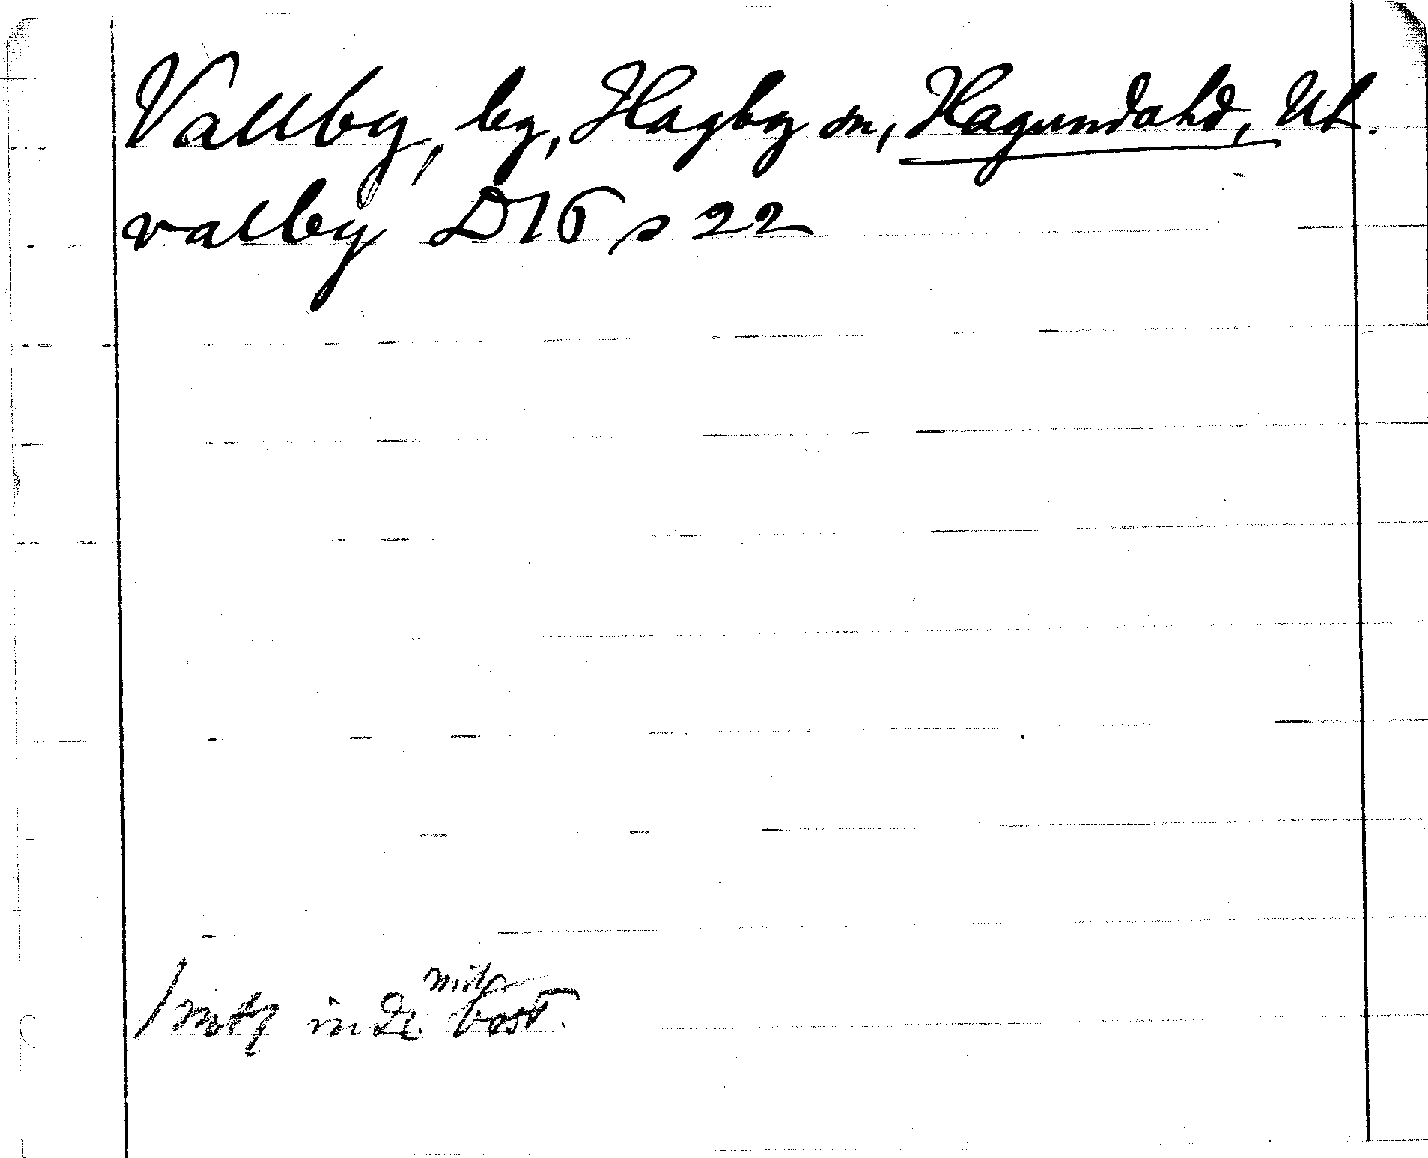 Vallby, by, Hagby sn, Hagundahd, Ul.
valby D16 s 22